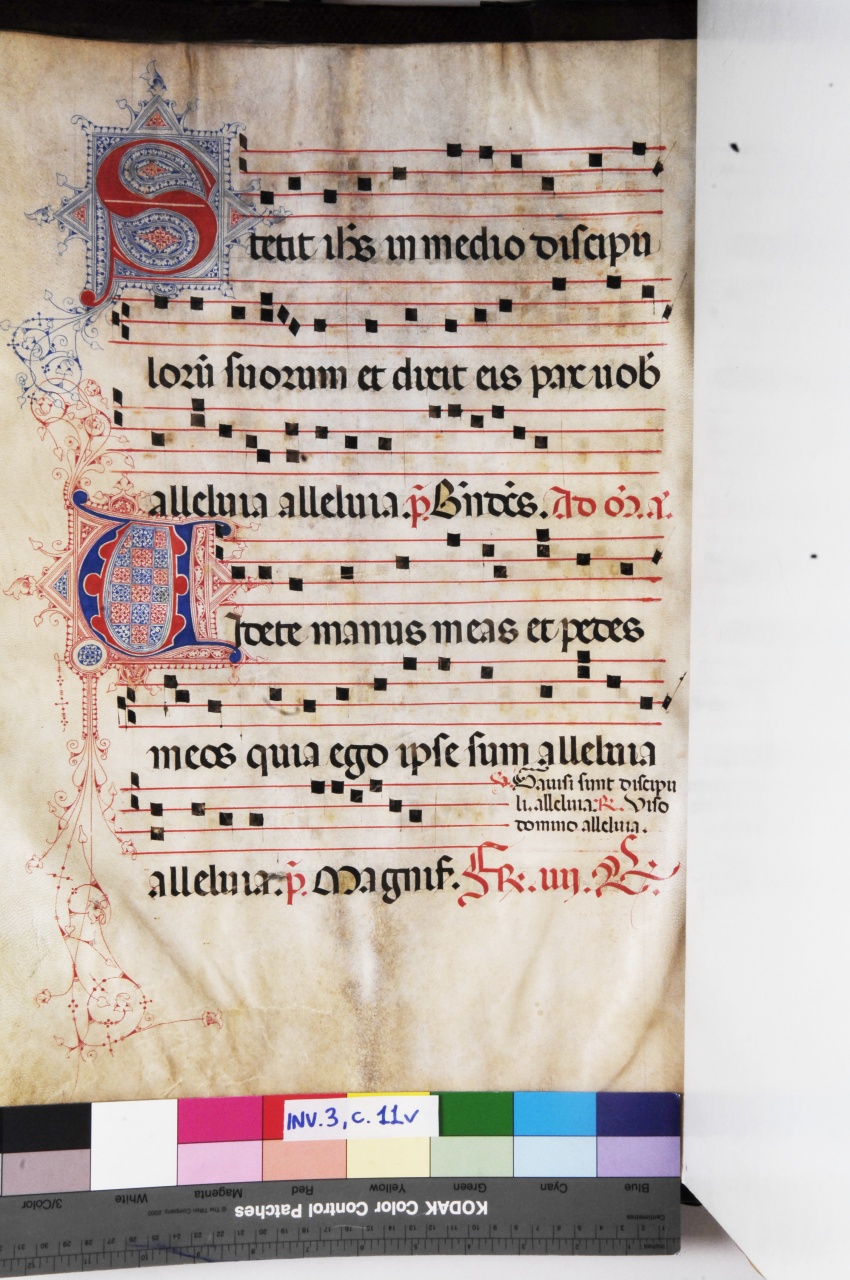 Stetit ihs in medio discipu
loru suorum et dixit eis pax uob
alleluia alleluia. p. Bndcs. Ad
Videte manus meas et pedes
meos quia ego ipse sum alleluia
V. Gauisi sunt discipu
li. alleluia. R. Viso
domino alleluia.
alleluia. p. Magnif. FR. iiii.
INV. 3, c. 11v
3/Color White Magenta Red Yellow Green Cyan Blue
KODAK Color Control Patches